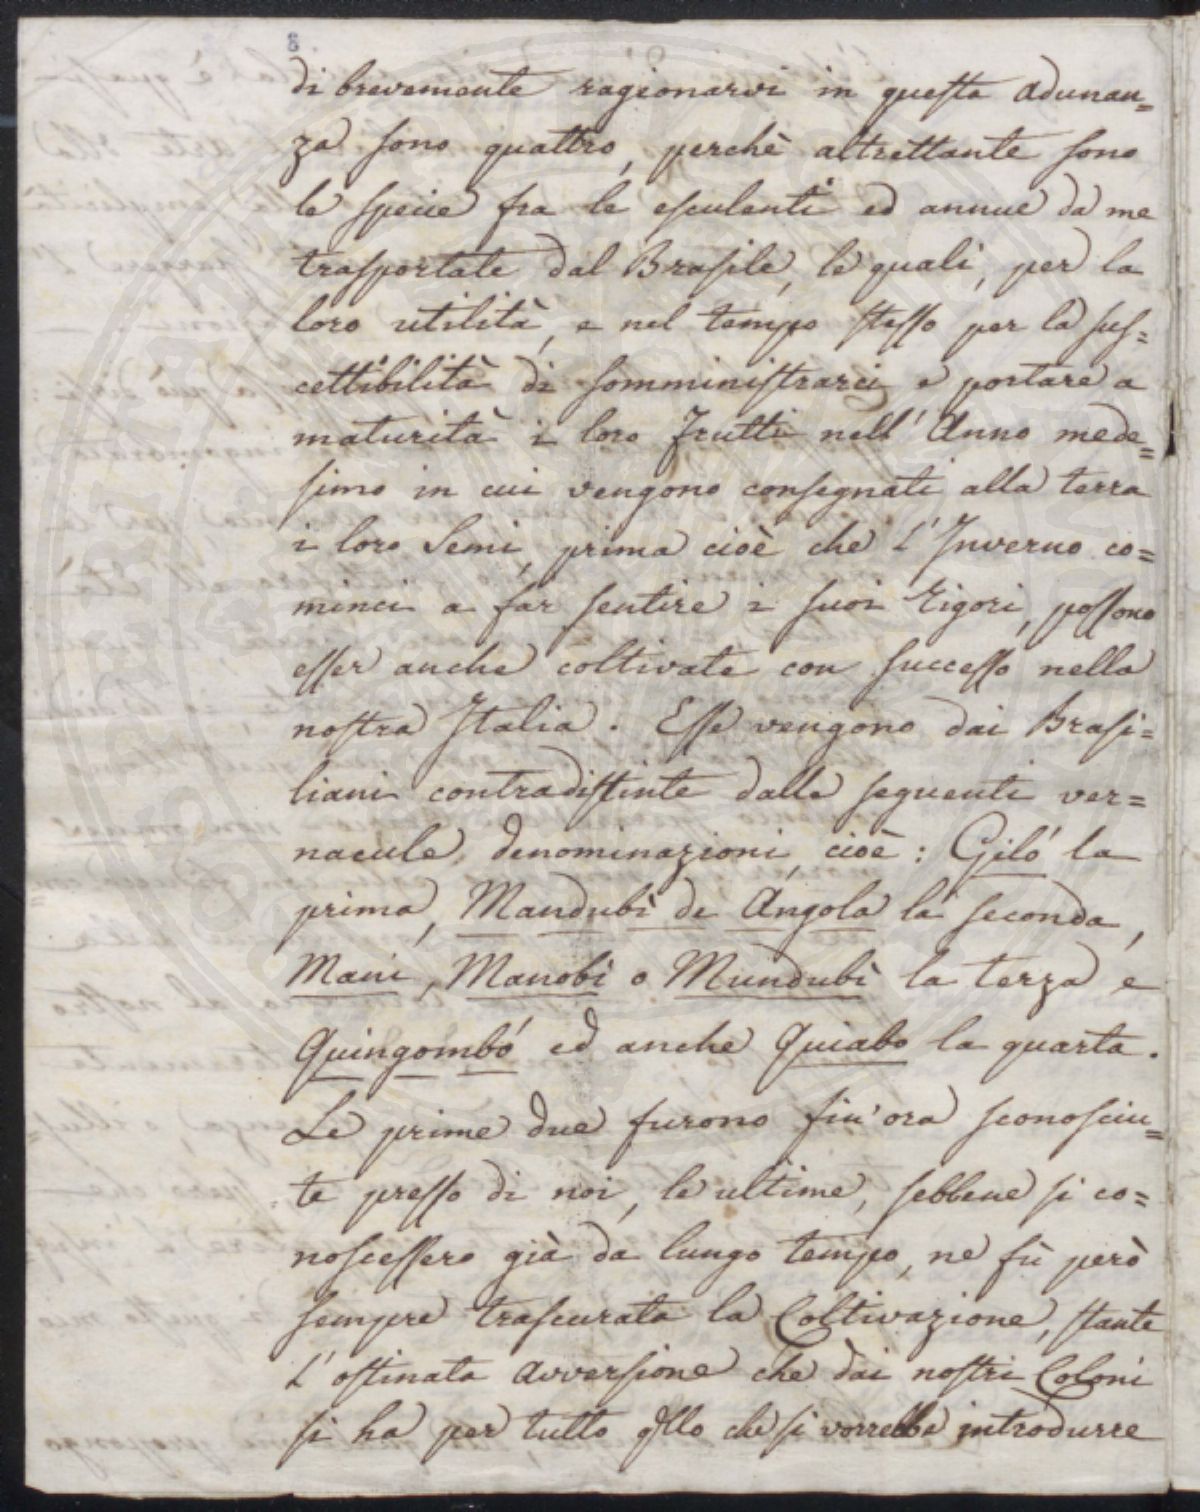 8
di brevemente ragionarvi in questa adunan=
za sono quattro, perchè altrettante sono
le specie fra le esculenti ed annue da me
trasportate dal Brasile, le quali, per la
loro utilità, e nel tempo stesso per la sus=
cettibilità di somministrarci e portare a
maturità i loro Frutti nell' Anno mede=
simo in cui vengono consegnati alla terra
i loro Semi, prima cioè che l'Inverno co=
minci a far sentire i suoi Rigori, possono
esser anche coltivate con successo nella
nostra Italia. Esse vengono dai Brasi=
liani contradistinte dalle seguenti ver=
nacule denominazioni, cioè: Giló la
prima, Mandubì de Angola la seconda,
Mani, Manobì o Mundubì la terza e
Quingombó ed anche Quiabo la quarta.
Le prime due furono fin'ora sconosciu=
te presso di noi, le ultime, sebbene si co=
noscessero già da lungo tempo, ne fù però
sempre trascurata la Coltivazione, stante
l'ostinata avversione che dai nostri Coloni
si ha per tutto qllo che si vorrebbe introdurre